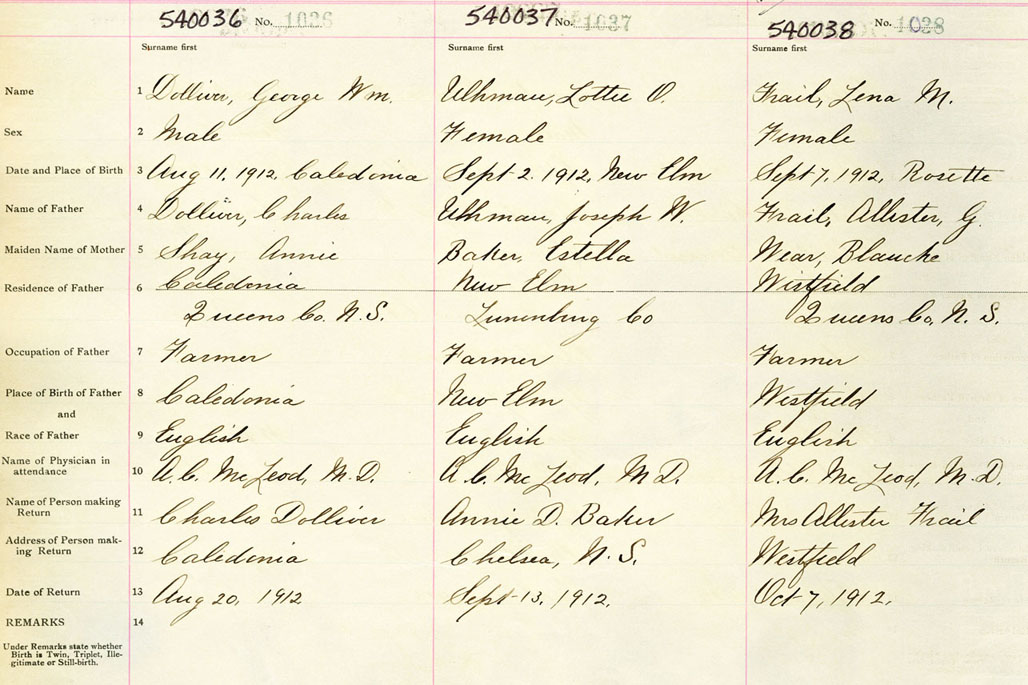 540036 No. 1036 540037 No. 1037 540038 No. 1038
Surname first Surname first Surname first
Name 1 Dolliver, George Wm. Uhlman, Lottie O. Frail, Lena M.
Sex 2 Male Female Female
Date and Place of Birth 3 Aug 11, 1912, Caledonia Sept 2. 1912, New Elm Sept 7, 1912, Rosette
Name of Father 4 Dolliver, Charles Uhlman, Joseph W. Frail, Allister, G.
Maiden Name of Mother 5 Shay, Annie Baker, Estella Wear, Blanche
Residence of Father 6 Caledonia New Elm Westfield
Queens Co. N.S. Lunenburg Co Queens Co, N. S.
Occupation of Father 7 Farmer Farmer Farmer
Place of Birth of Father 8 Caledonia New Elm Westfield
and
Race of Father 9 English English English
Name of Physician in
attendance 10 A. C. McLeod, M.D. A. C. McLeod, M D. A. C. McLeod, M.D.
Name of Person making
Return 11 Charles Dolliver Annie D. Baker Mrs Allister Frail
Address of Person mak-
ing Return 12 Caledonia Chelsea, N. S. Westfield
Date of Return 13 Aug 20, 1912 Sept-13, 1912, Oct 7, 1912,
REMARKS 14
Under Remarks state whether
Birth is Twin, Triplet, Ille-
gitimate or Still-birth.